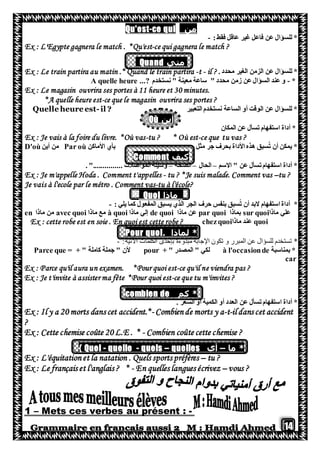 Qu'est-ce qui من
* للسؤال عن فاعل غير عاقل فقط : -
Ex : L'Egypte gagnera le match . *Qu'est-ce qui gagnera le match ?
Quand متى
* للسؤال عن الزمن الغير محدد . Ex : Le train partira au matin . * Quand le train partira -t - il ?
* - و عند السؤال عن زمن محدد " ساعة معينة " نستخدم A quelle heure ...?
Ex : Le magasin ouvrira ses portes à 11 heure et 30 minutes.
*A quelle heure est-ce que le magasin ouvrira ses portes ?
* للسؤال عن الوقت أو الساعة نستخدم التعبير Quelle heure est- il ?
Où أين
* أداة استفهام تسأل عن المكان
Ex : Je vais à la foire du livre. *Où vas-tu ? * Où est-ce que tu vas ?
* يمكن أن تُسبق هذه الأداة بحرف جر مثل Par où بأي الأماكن D'où من أين
Comment كيف
* أداة استفهام تسأل عن " الاسم – الحال – الصفة – وسيلة المواصلات .............. " .
Ex : Je m'appelle Hoda . Comment t'appelles - tu ? *Je suis malade. Comment vas –tu ?
Je vais à l'école par le métro . Comment vas-tu à l'école?
Quoi ماذا
* أداة استفهام لابد أن تُسبق بنفس حرف الجر الذي يسبق المفعول كما يلي : -
على ماذا sur quoi بماذا par quoi عن ماذا de quoi إلى ماذا à quoi مع ماذا avec quoi من ماذا en
Ex : cette robe est en soie . En quoi est cette robe ? chez quoi عند ماذا quoi
Pour quoi لماذا *
* تستخدم للسؤال عن المبرر و تكون الإجابة مبدوءة بإحدى الكلمات الآتية: -
* بمناسبة à l'occasion de لكي " المصدر " + pour لأن " جملة كاملة " + Parce que =
car
Ex : Parce qu'il aura un examen. *Pour quoi est-ce qu'il ne viendra pas ?
Ex : Je t'invite à assister ma fête *Pour quoi est-ce que tu m'invites ?
Combien de كم *
* أداة استفهام تسأل عن العدد أو الكمية أو السعر .
Ex : Il y a 20 morts dans cet accident.*- Combien de morts y a-t-il dans cet accident
?
Ex : Cette chemise coûte 20 L.E . * - Combien coûte cette chemise ?
Quel - quelle - quels – quelles ما – أى *
Ex : L'équitation et la natation . Quels sports préfères – tu ?
Ex : Le français et l'anglais ? * - En quelles langues écrivez – vous ?
مع أرق أمنياتي بدوام النجاح و التفوق
A tous mes meilleurs élèves
M : Hamdi Ahmed
1 – Mets ces verbes au présent : -
Grammaire en français aussi 2 M : Hamdi Ahmed 14